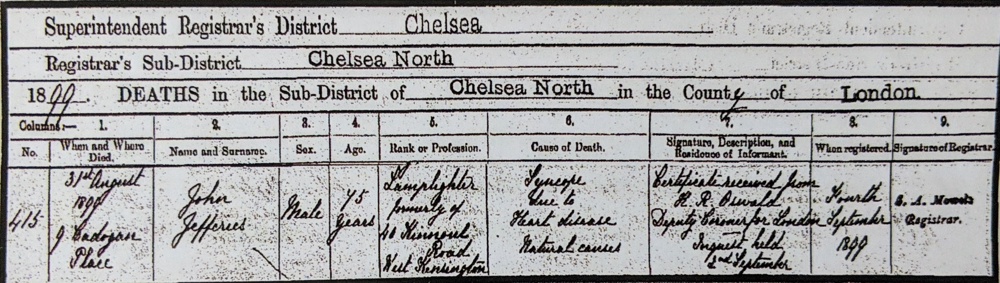 Superintendent Registrar's District Chelsea
Registrar's Sub-District Chelsea North
1899. DEATHS in the Sub-District of Chelsea North in the County of London
Columns:— 1. 2. 3. 4. 5. 6. 7. 8. 9.
No. When and Where Died. Name and Surname. Sex. Age. Rank or Profession. Cause of Death. Signature, Description, and Residence of Informant. When registered. Signature of Registrar.
415
31st August
1899
9 Cadogan
Place
John
Jefferies
Male
75
Years
Lamplighter
formerly of
40
Road
West Kensington
Syncope
due to
Heart disease
Natural causes
Certificate received from
H. R. Oswald
Deputy Coroner for London
Inquest held
2nd September
Fourth
September
1899
S. A.
Registrar.